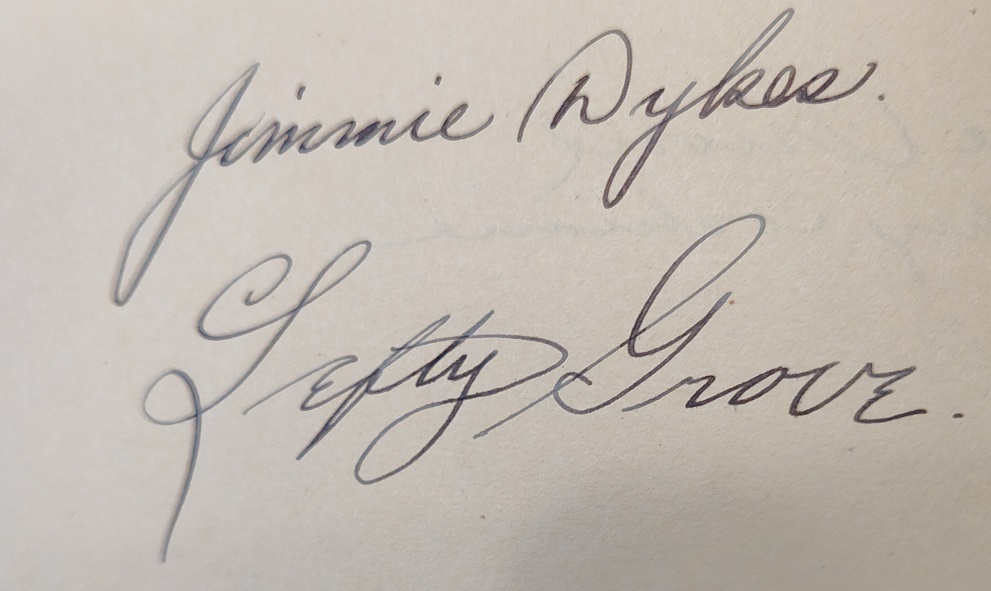 Jimmie Dykes.
Lefty Grove.